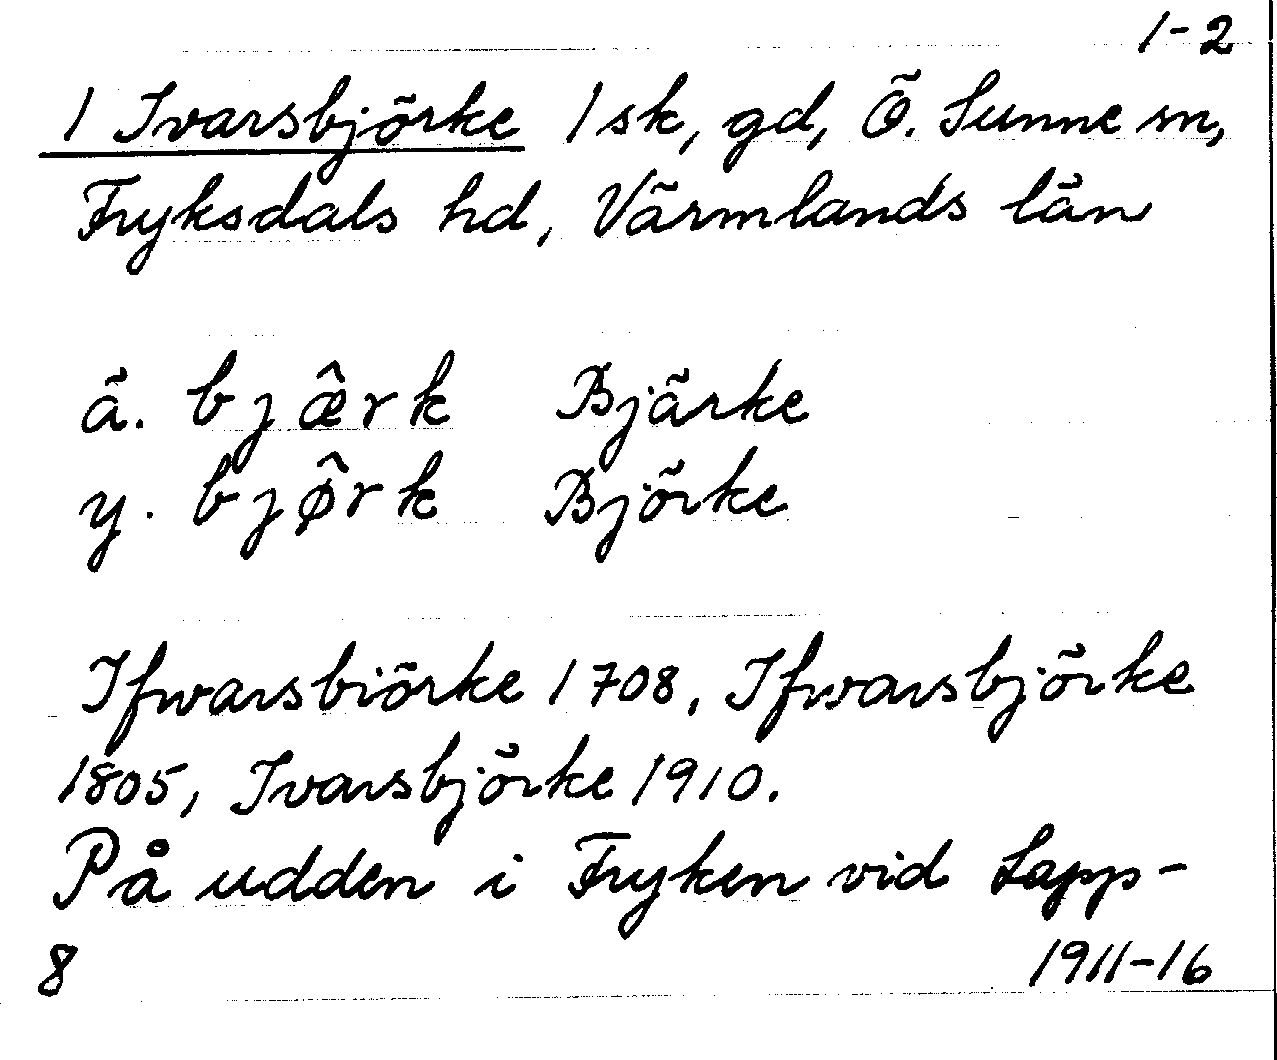 1-2
1 Ivarsbjörke 1 sk, gd, Ö. Sunne sn,
Fryksdals hd, Värmlands län
ä. bjæ̂rk Bjärke
y. bjø̂rk Björke
Ifwarsbiörke 1708, Ifwarsbjörke
1805, Ivarsbjörke 1910.
På udden i Fryken vid Lapp-
8 1911-16